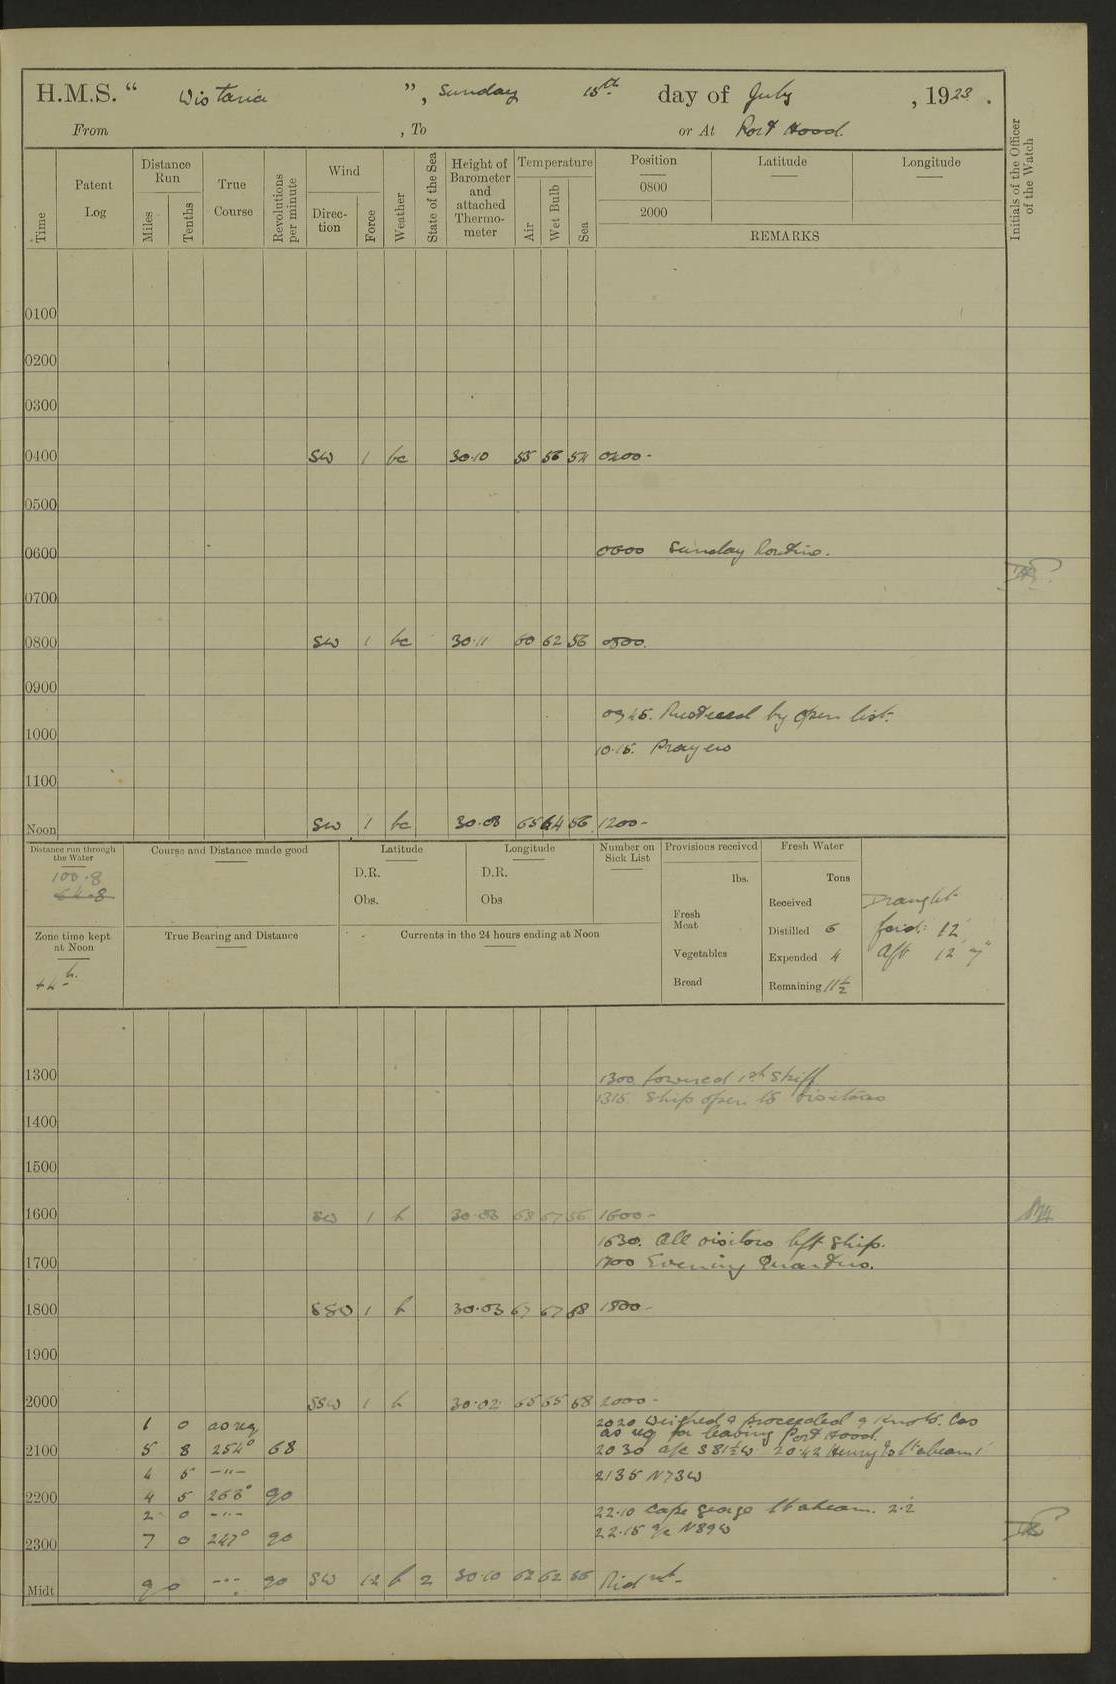 H.M.S. " Wistaria ", Sunday 15th day of July, 1923.
From , To or At Port Hood.
Time
Patent Log
Distance Run
Miles
Tenths
True Course
Revolutions per minute
Wind
Direction
Force
Weather
State of the Sea
Height of Barometer and attached Thermometer
Temperature
Air
Wet Bulb
Sea
Position Latitude Longitude
0800
2000
REMARKS
Initials of the Officer of the Watch
0100
0200
0300
0400 SW 1 bc 30.10 55 56 54 0400-
0500
0600 0600 Sunday Routine.
0700
0800 SW 1 bc 30.11 60 62 56 0800.
0900
0945. Mustered by open list.
1000
10.15. Prayers
1100
Noon SW 1 bc 30.08 65 64 56 1200-
Distance run through the Water
100.8
64.8
Course and Distance made good
Latitude
D.R.
Obs.
Longitude
D.R.
Obs
Number on Sick List
Provisions received
lbs.
Fresh Meat
Vegetables
Bread
Fresh Water
Tons
Received
Distilled 6
Expended 4
Remaining 11½
Draught
ford: 12'
aft 12' 7"
Zone time kept at Noon
+4 h.
True Bearing and Distance
Currents in the 24 hours ending at Noon
1300 1300 lowered 1st Skiff
1315. Ship open to visitors
1400
1500
1600 SW 1 b 30.03 68 67 56 1600-
1630. All visitors left ship.
1700 1700 Evening Quarters.
1800 SSW 1 b 30.03 67 67 58 1800-
1900
2000 SSW 1 b 30.02 65 65 58 2000-
1 0 as req 2020 Weighed & proceeded 9 knots. Cos
as req for leaving Port Hood.
2100 5 8 254° 68 2030 a/c S81½W 20.42 Henry I. Lt abeam 1'
4 5 -"- 2135 N73W
2200 4 5 266° 90
2 0 -"- 22.10 Cape George Lt abeam. 2.2
22.15 a/c N89W
2300 7 0 247° 90
Midt 9 0 -"- 90 SW 1-2 b 2 30.10 62 62 56 Midnt-